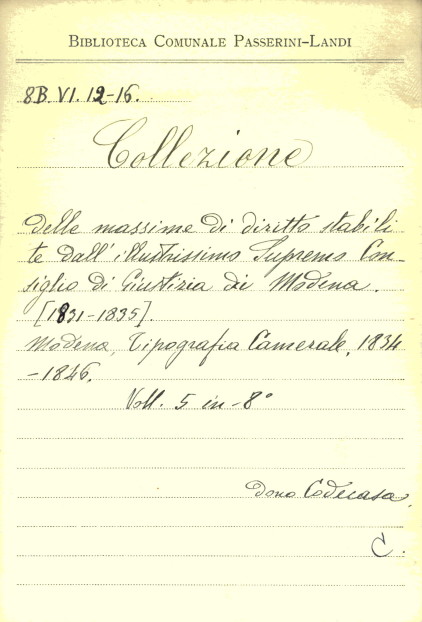 BIBLIOTECA COMUNALE PASSERINI-LANDI
8B. VI. 12-16.
Collezione
delle massime di diritto stabili
te dall'illustrissimo Supremo Con-
siglio di Giustizia di Modena.
[1831-1835].
Modena, Tipografia Camerale, 1834
-1846.
Voll. 5 in-8°
Dono Codecasa.
C.